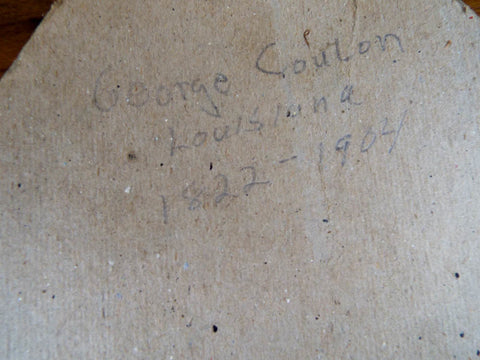 George Coulon
Louisiana
1822-1904